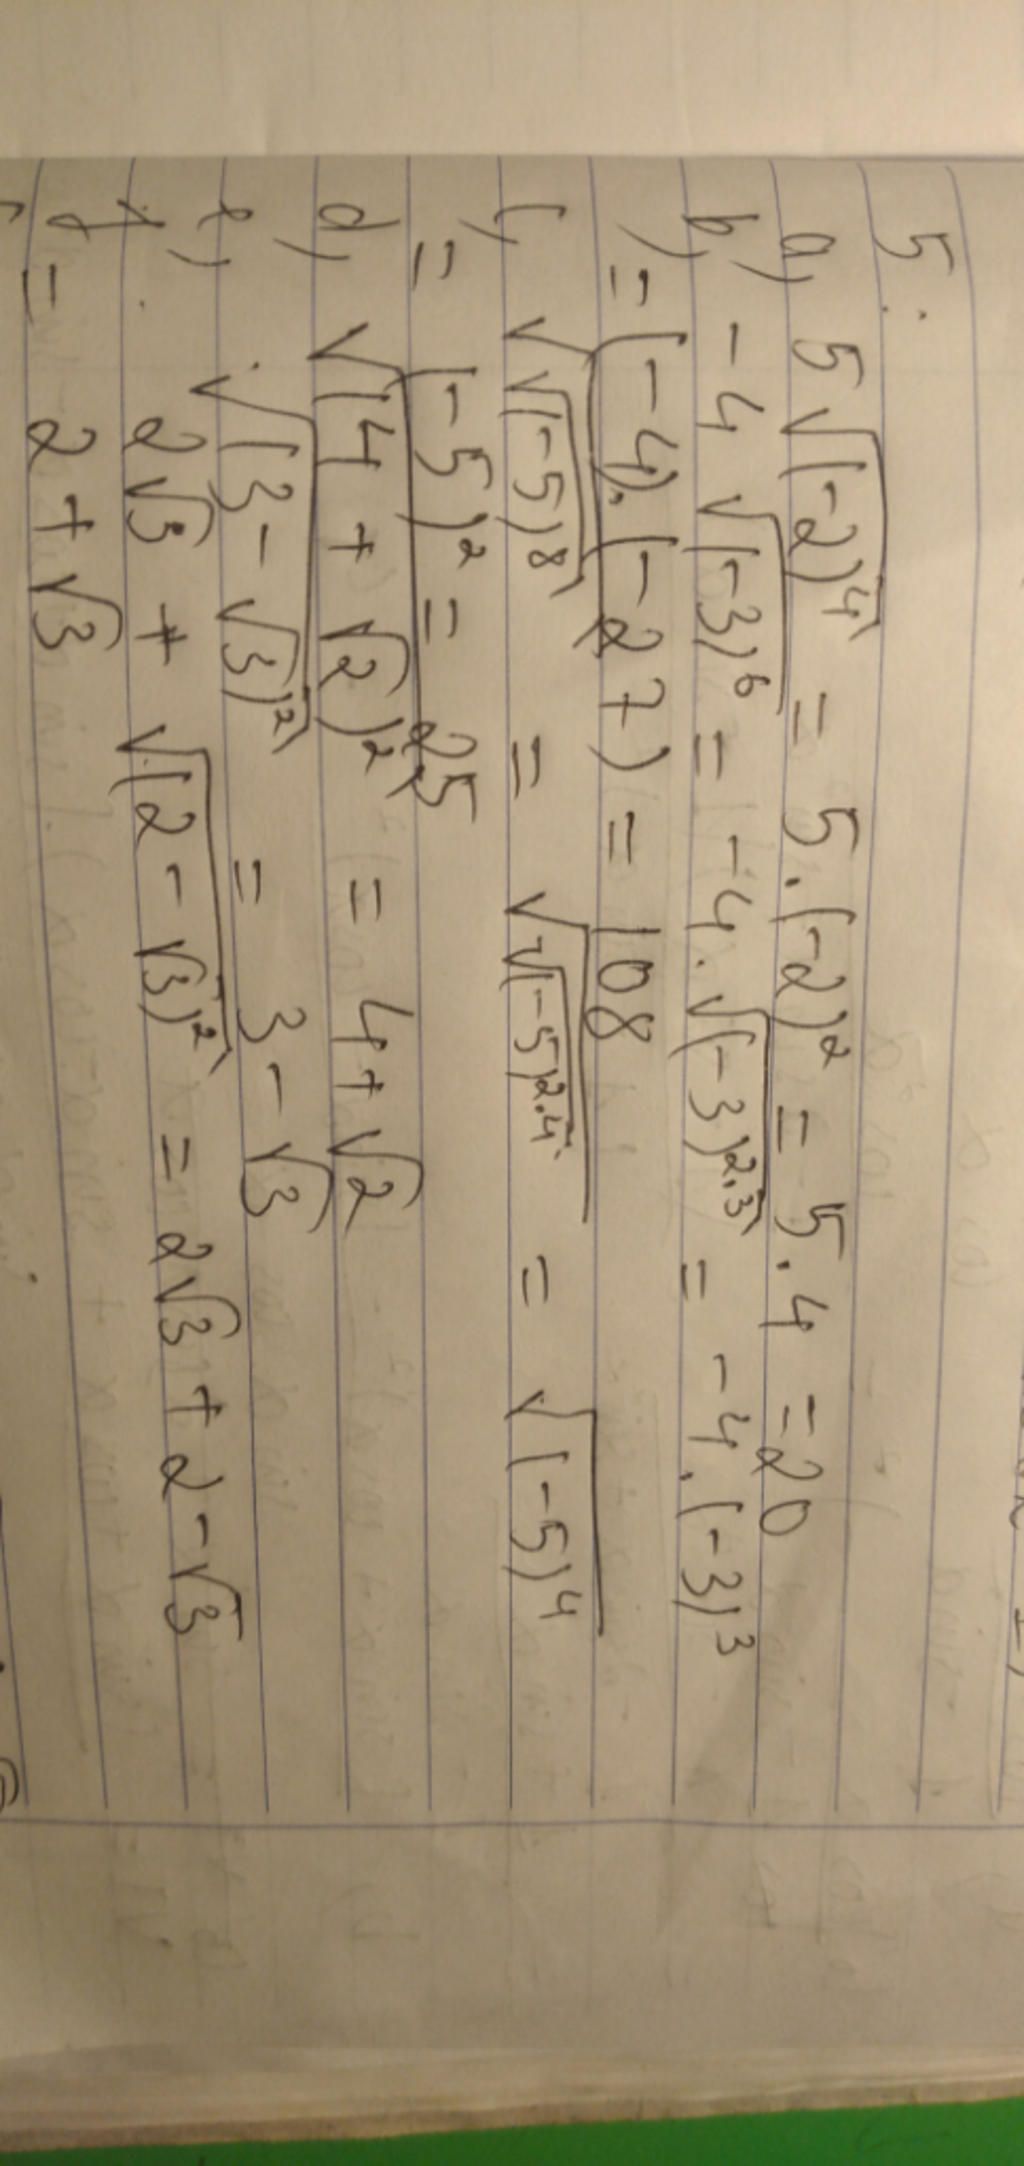 5.
a, 5√(-2)⁴ = 5.(-2)² = 5.4 = 20
b, -4√(-3)⁶ = -4.√(-3)²·³ = -4.(-3)³
= (-4).(-27) = 108
c, √√(-5)⁸ = √√(-5)²·⁴ = √(-5)⁴
= (-5)² = 25
d, √(4 + √2)² = 4 + √2
e, √(3 - √3)² = 3 - √3
f, 2√3 + √(2 - √3)² = 2√3 + 2 - √3
= 2 + √3